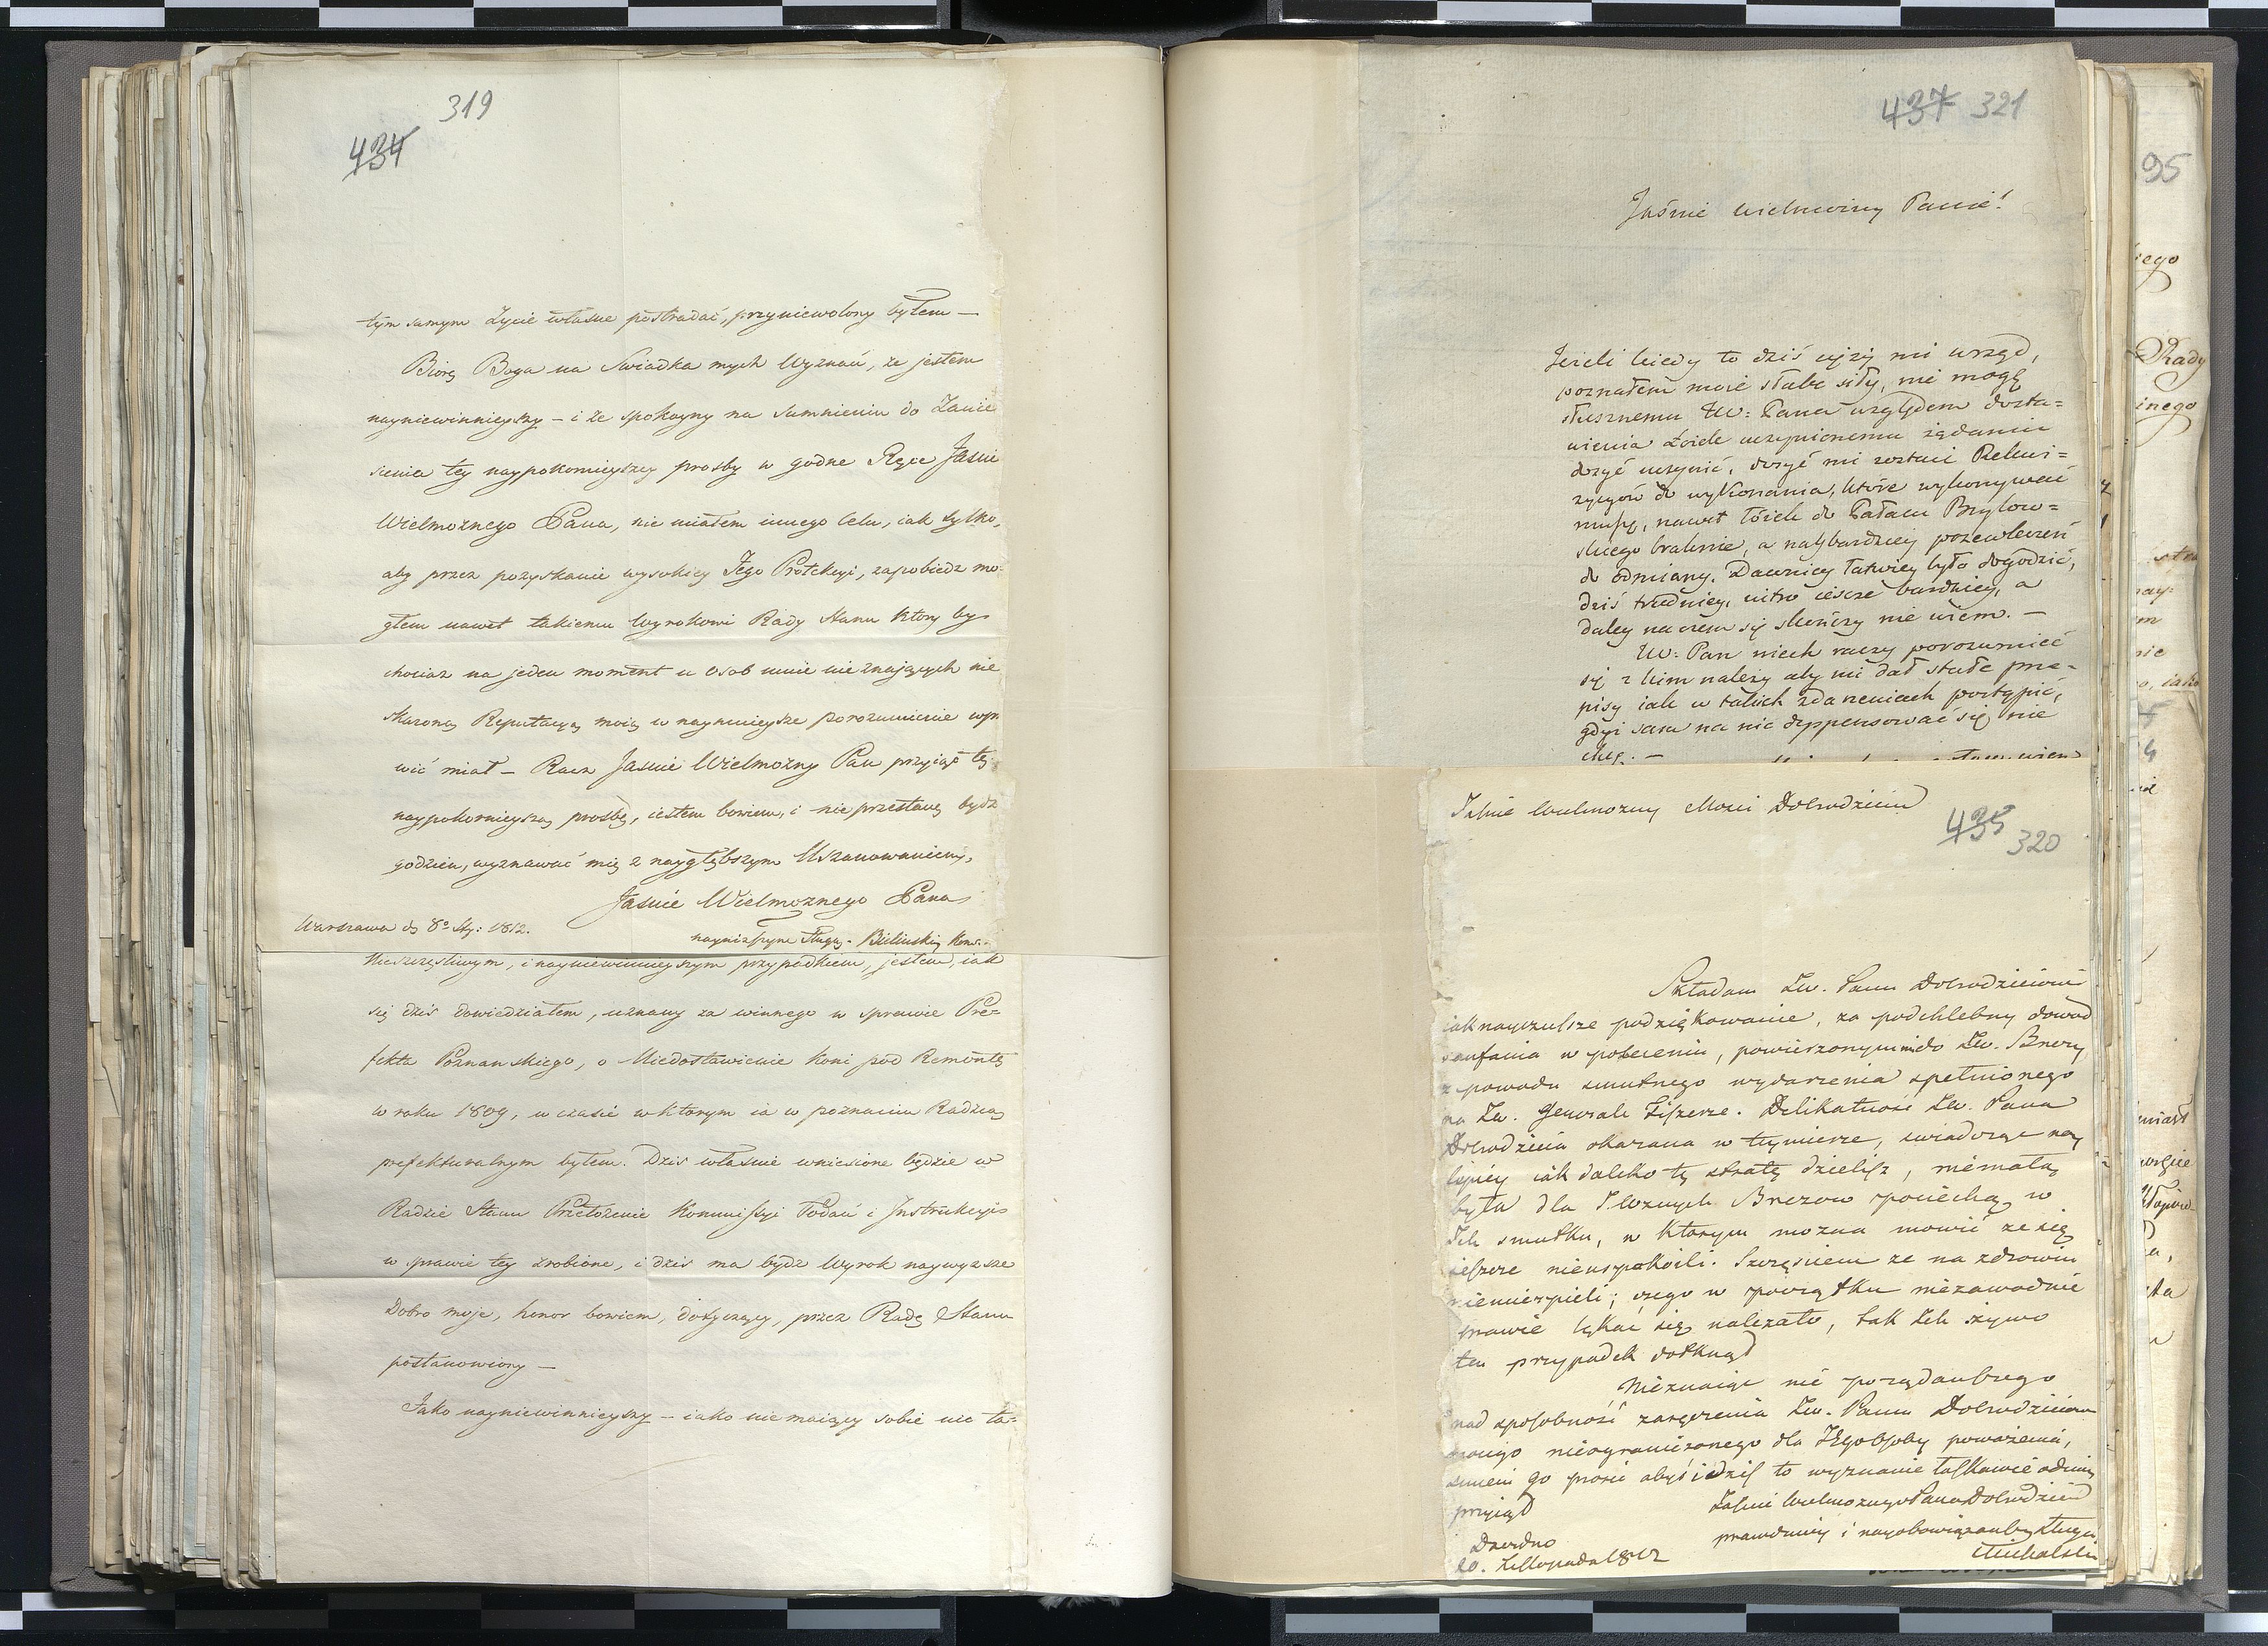 319
434
tym samym Zycie własne postradać, przyniewolony byłem —
Biorę Boga na Swiadka mych Wyznań, że jestem
nayniewinnieyszy — i że spokoyny na sumnieniu do Zanie
sienia tey naypokornieyszey prosby w godne Ręce Jasnie
Wielmoznego Pana, nie miałem innego celu, iak tylko,
aby przez pozyskanie wysokiey Jego Protekcyi, zapobiedz mo-
głem nawet takiemu Wyrokowi Rady Stanu ktory by
chociaz na jeden moment u Osob mnie nie znaiących nie
skazoną Reputacyą moią w naymnieysze porozumienie wpra
wić miał — Racz Jasnie Wielmozny Pan przyiąć tę
naypokornieyszą prosbę, iestem bowiem, i nie przestanę bydz
godzien, wyznawać mię z naygłębszym Uszanowaniem,
Jasnie Wielmoznego Pana
Warszawa d. 8º Sty: 1812.
nayniższym Sługą. Bielinski
Nieszczęsliwym, i nayniewinnieyszym przypadkiem, jestem, iak
się dzis dowiedziałem, uznany za winnego w sprawie Pre=
fekta Poznanskiego, o Niedostawienie Koni pod Remontę
w roku 1809, w czasie w ktorym ia w poznaniu Radzcą
prefekturalnym byłem. Dzis własnie wniesione będzie w
Radzie Stanu Przełożenie Kommissyi Podań i Instrukcyi
w sprawie tey zrobione, i dzis ma bydz Wyrok naywyzsze
Dobro moje, honor bowiem, dotyczący, przez Radę Stanu
postanowiony —
Jako nayniewinnieyszy — iako nie maiący sobie nic za=
437 321
Jaśnie Wielmożny Panie!
Jeżeli kiedy to dziś cięży mi urząd,
poznałem moie słabe siły, nie mogę
słusznemu JW: Pana względem dosta=
wienia Łóżek uczynionemu żądaniu
dosyć uczynić, dosyć mi zostaie Rekwi=
zycyów do wykonania, które wykonywać
muszę, nawet łóżek do Pałacu Brylow=
skiego braknie, a naybardziey pozewleczeń
do odmiany. Dawniey łatwiey było dogodzić,
dziś trudniey, iutro ieszcze bardziey, a
daley na czem się skończy nie wiem. —
JW: Pan niech raczy porozumieć
się z kim należy aby mi dał stałe prze-
pisy iak w takich zdarzeniach postąpić,
gdyż sam na nic dyspensować się nie
chcę. —
Jaśnie Wielmozny Mości Dobrodzieiu
435
320
Składam JW. Panu Dobrodzieiowi
iak nayczulsze podziękowanie, za podchlebny dowod
zaufania w poleceniu, powierzonym mi do JW. Brezy
z powodu smutnego wydarzenia spełnionego
na JW. Generale Fiszerze. Delikatność JW. Pana
Dobrodzieia okazana w tey mierze, swiadcząc nay
lepiey iak daleko tę stratę dzielisz, niemałą
była dla JWoznych Brezow pociechą w
Ich smutku, w ktorym mozna mowić ze się
ieszcze nieuspokoili. Szczęsciem ze na zdrowiu
nieucierpieli; czego w początku niezawodnie
prawie lękać się nalezało, tak Ich zywo
ten przypadek dotknął
Nieznaiąc nic pożądańszego
nad sposobność zaręczenia JW. Panu Dobrodzieiowi
mouego nieograniczonego dla Jego Osoby poważenia,
smiem go prosić abyś i dziś to wyznanie łaskawie odemnie
przyiął
Jaśnie Wielmoznego Pana Dobrodzieia
prawdziwy i nayobowiązańszy sługa
Michalski
20. Listopada 1812
95